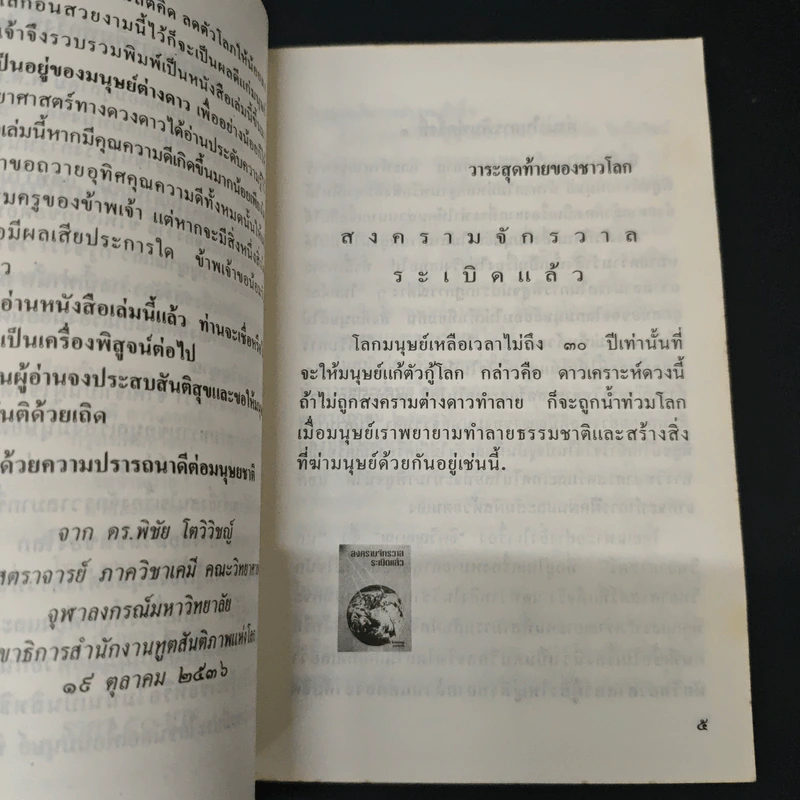 ลดตัวโลกให้น้อย
โลกอันสวยงามนี้ไว้ก็จะเป็นผลดีแก่
เจ้าจึงรวบรวมพิมพ์เป็นหนังสือเล่มนี้ขึ้น
ป็นอยู่ของมนุษย์ต่างดาว เพื่ออย่างน้อย
ยาศาสตร์ทางดวงดาวได้อ่านประดับความรู้
เล่มนี้หากมีคุณความดีเกิดขึ้นมากน้อยเพียง
าขอถวายอุทิศคุณความดีทั้งหมดนั้นให้
มครูของข้าพเจ้า แต่หากจะมีสิ่งหนึ่งสิ่ง
อมีผลเสียประการใด ข้าพเจ้าขอน้อม
ว
อ่านหนังสือเล่มนี้แล้ว ท่านจะเชื่อหรือ
เป็นเครื่องพิสูจน์ต่อไป
นผู้อ่านจงประสบสันติสุขและขอให้
ันติด้วยเถิด
ด้วยความปรารถนาดีต่อมนุษยชาติ
จาก ดร.พิชัย โตวิวิชญ์
สตราจารย์ ภาควิชาเคมี คณะวิทยาศา
จุฬาลงกรณ์มหาวิทยาลัย
ขาธิการสำนักงานทูตสันติภาพแห่งโลก
๑๙ ตุลาคม ๒๕๓๖
วาระสุดท้ายของชาวโลก
ส ง ค ร า ม จั ก ร ว า ล
ร ะ เ บิ ด แ ล้ ว
โลกมนุษย์เหลือเวลาไม่ถึง ๓๐ ปีเท่านั้นที่
จะให้มนุษย์แก้ตัวกู้โลก กล่าวคือ ดาวเคราะห์ดวงนี้
ถ้าไม่ถูกสงครามต่างดาวทำลาย ก็จะถูกน้ำท่วมโลก
เมื่อมนุษย์เราพยายามทำลายธรรมชาติและสร้างสิ่ง
ที่ฆ่ามนุษย์ด้วยกันอยู่เช่นนี้.
สงครามจักรวาล
ระเบิดแล้ว
๕